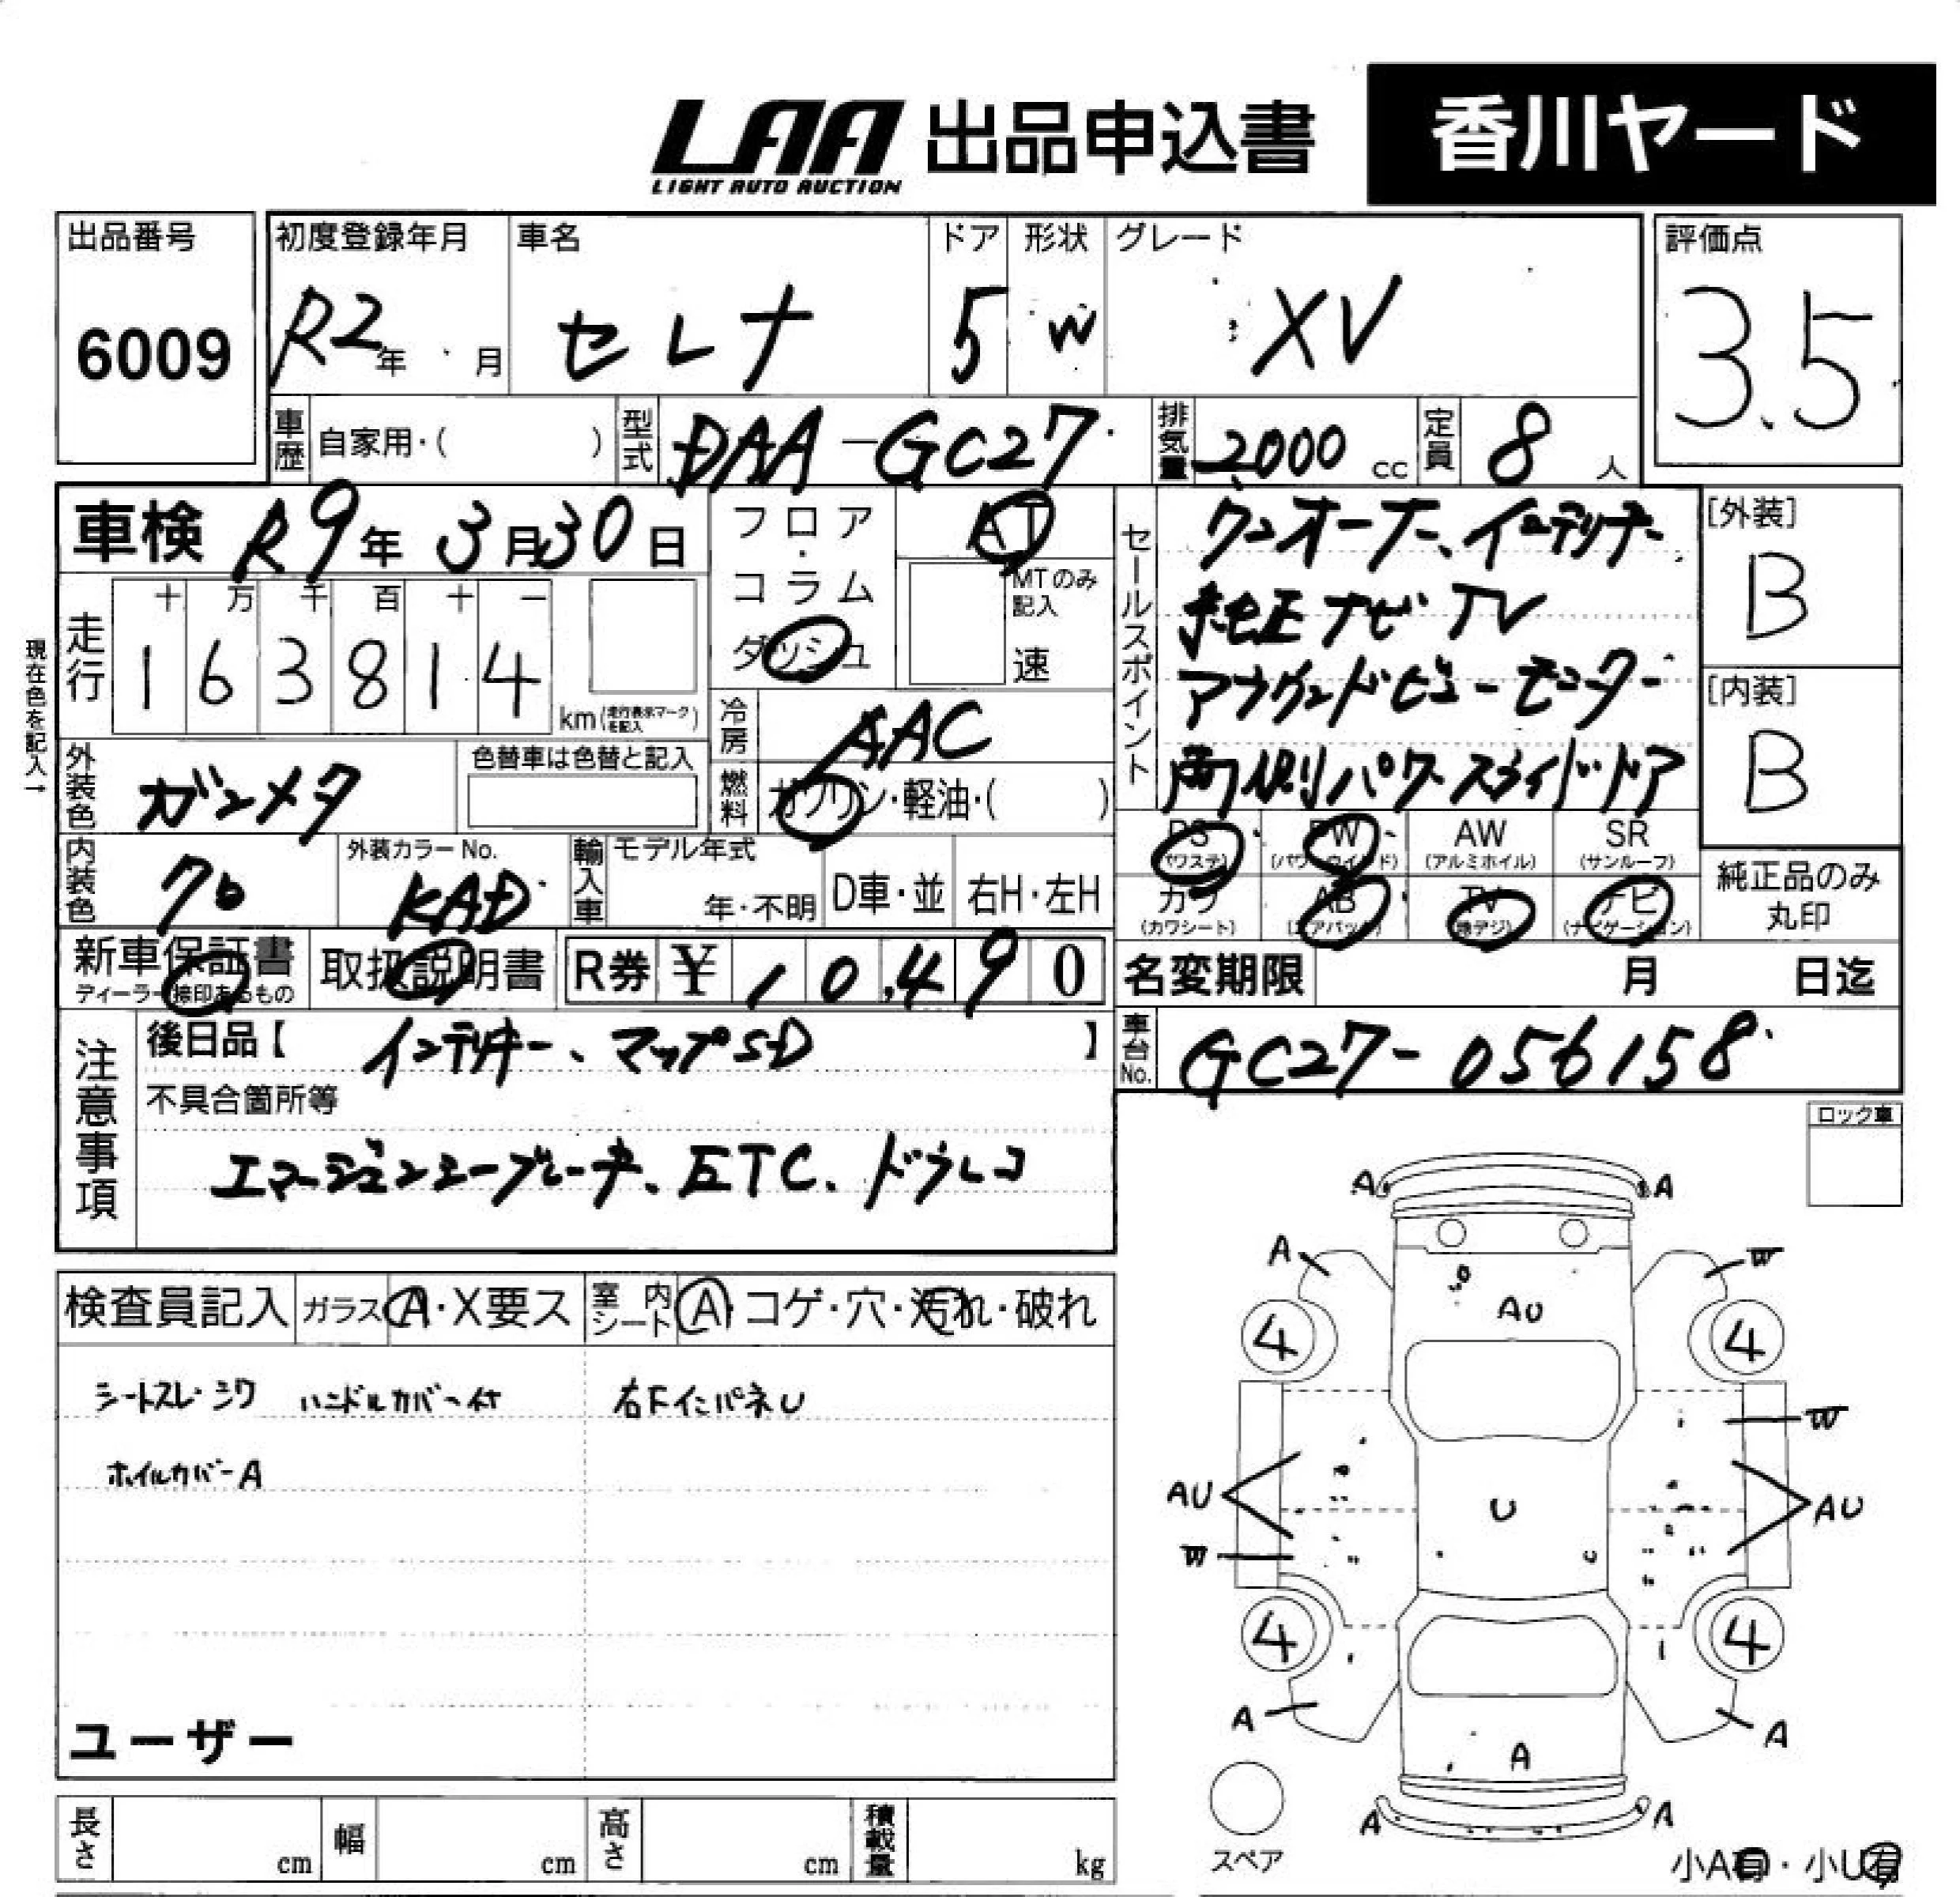 LAA 出品申込書 香川ヤード
LIGHT AUTO AUCTION
出品番号 初度登録年月 車名 ドア 形状 グレード 評価点
6009 R2年 月 セレナ 5 W XV 3.5
車歴 自家用・( ) 型式 DAA-GC27 排気量 2000 cc 定員 8 人
車検 R9年 3月30日 フロア・コラム ダッシュ AT
MTのみ記入 速
セールスポイント ワンオーナー、インテリキー
純正ナビTV
アラウンドビューモニター
両側パワースライドドア
[外装] B
[内装] B
現在色を記入→
走行 十 万 千 百 十 一
1 6 3 8 1 4 km(走行表示マークを記入)
冷房 AAC
外装色 ガンメタ 色替車は色替と記入
燃料 ガソリン・軽油・( )
内装色 クロ 外装カラーNo. KAD 輸入車 モデル年式 年・不明 D車・並 右H・左H
PS (パワステ) PW (パワーウインド) AW (アルミホイル) SR (サンルーフ)
カワ (カワシート) AB (エアバッグ) TV (地デジ) ナビ (ナビゲーション)
純正品のみ丸印
新車保証書 ディーラー捺印あるもの 取扱説明書 R券 ¥ 10,490
名変期限 月 日迄
注意事項 後日品【 インテリキー、マップSD 】
車台No. GC27-056158
不具合箇所等
エマージェンシーブレーキ、ETC、ドラレコ
ロック車
検査員記入 ガラス A・X要ス 室内シート A・コゲ・穴・汚れ・破れ
シートスレ・シワ ハンドルカバー付 右FインパネU
ホイルカバーA
ユーザー
A A
A W
AU
4 4
W
AU U AU
W
4 4
A A
A
A A
スペア
小A有・小U有
長さ cm 幅 cm 高さ cm 積載量 kg